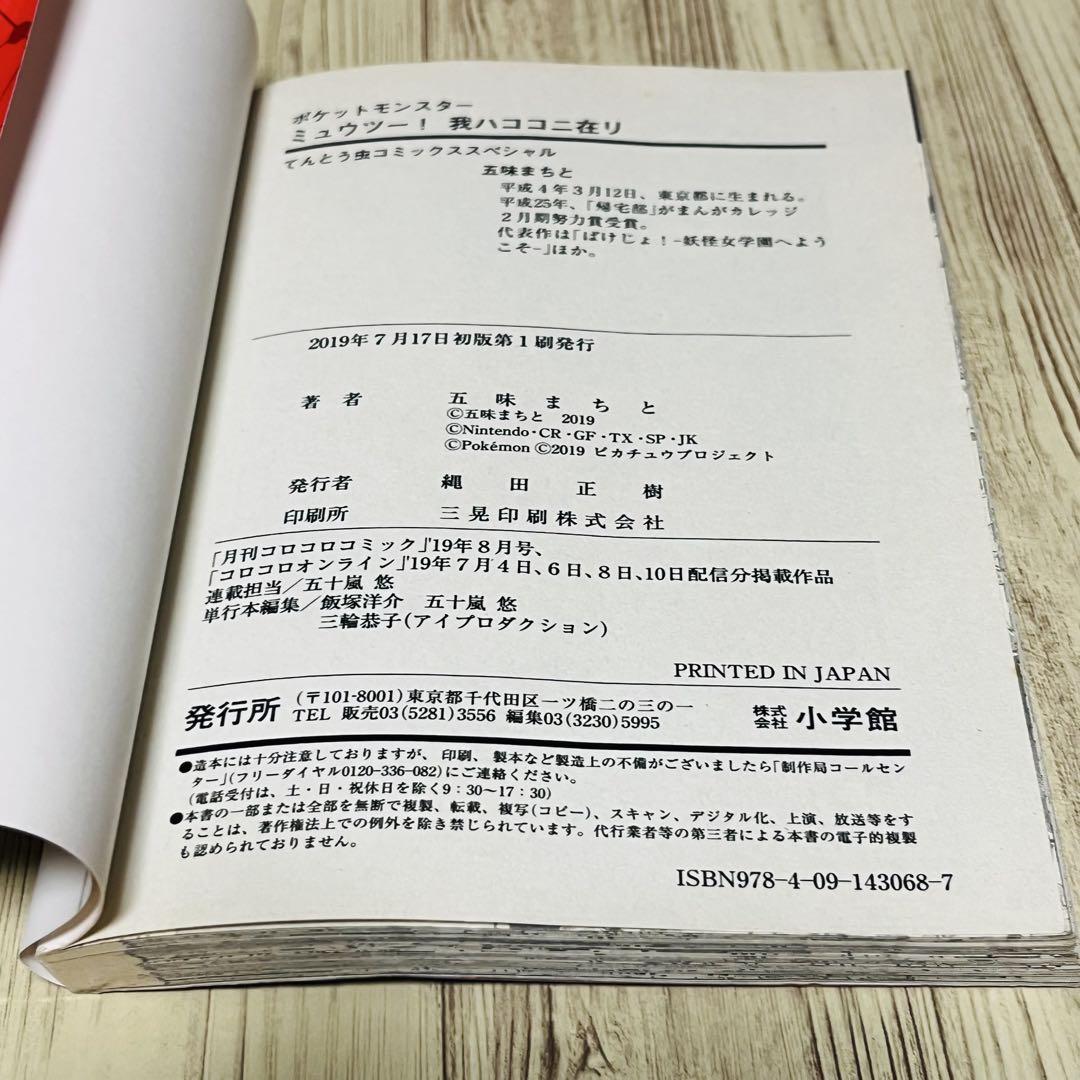 ポケットモンスター
ミュウツー！ 我ハココニ在リ
てんとう虫コミックススペシャル
五味まちと
平成４年３月12日、東京都に生まれる。
平成25年、「帰宅部」がまんがカレッジ
２月期努力賞受賞。
代表作は「ばけじょ！-妖怪女学園へよう
こそ-」ほか。
2019年７月17日初版第１刷発行
著者 五味まちと
©五味まちと 2019
©Nintendo・CR・GF・TX・SP・JK
©Pokémon ©2019 ピカチュウプロジェクト
発行者 縄田正樹
印刷所 三晃印刷株式会社
「月刊コロコロコミック」'19年８月号、
「コロコロオンライン」'19年７月４日、６日、８日、10日配信分掲載作品
連載担当／五十嵐 悠
単行本編集／飯塚洋介 五十嵐 悠
三輪恭子(アイプロダクション)
PRINTED IN JAPAN
発行所 (〒101-8001)東京都千代田区一ツ橋二の三の一
TEL 販売03(5281)3556 編集03(3230)5995
株式会社 小学館
●造本には十分注意しておりますが、印刷、製本など製造上の不備がございましたら「制作局コールセン
ター」(フリーダイヤル0120-336-082)にご連絡ください。
(電話受付は、土・日・祝休日を除く9：30〜17：30)
●本書の一部または全部を無断で複製、転載、複写(コピー)、スキャン、デジタル化、上演、放送等をす
ることは、著作権法上での例外を除き禁じられています。代行業者等の第三者による本書の電子的複製
も認められておりません。
ISBN978-4-09-143068-7